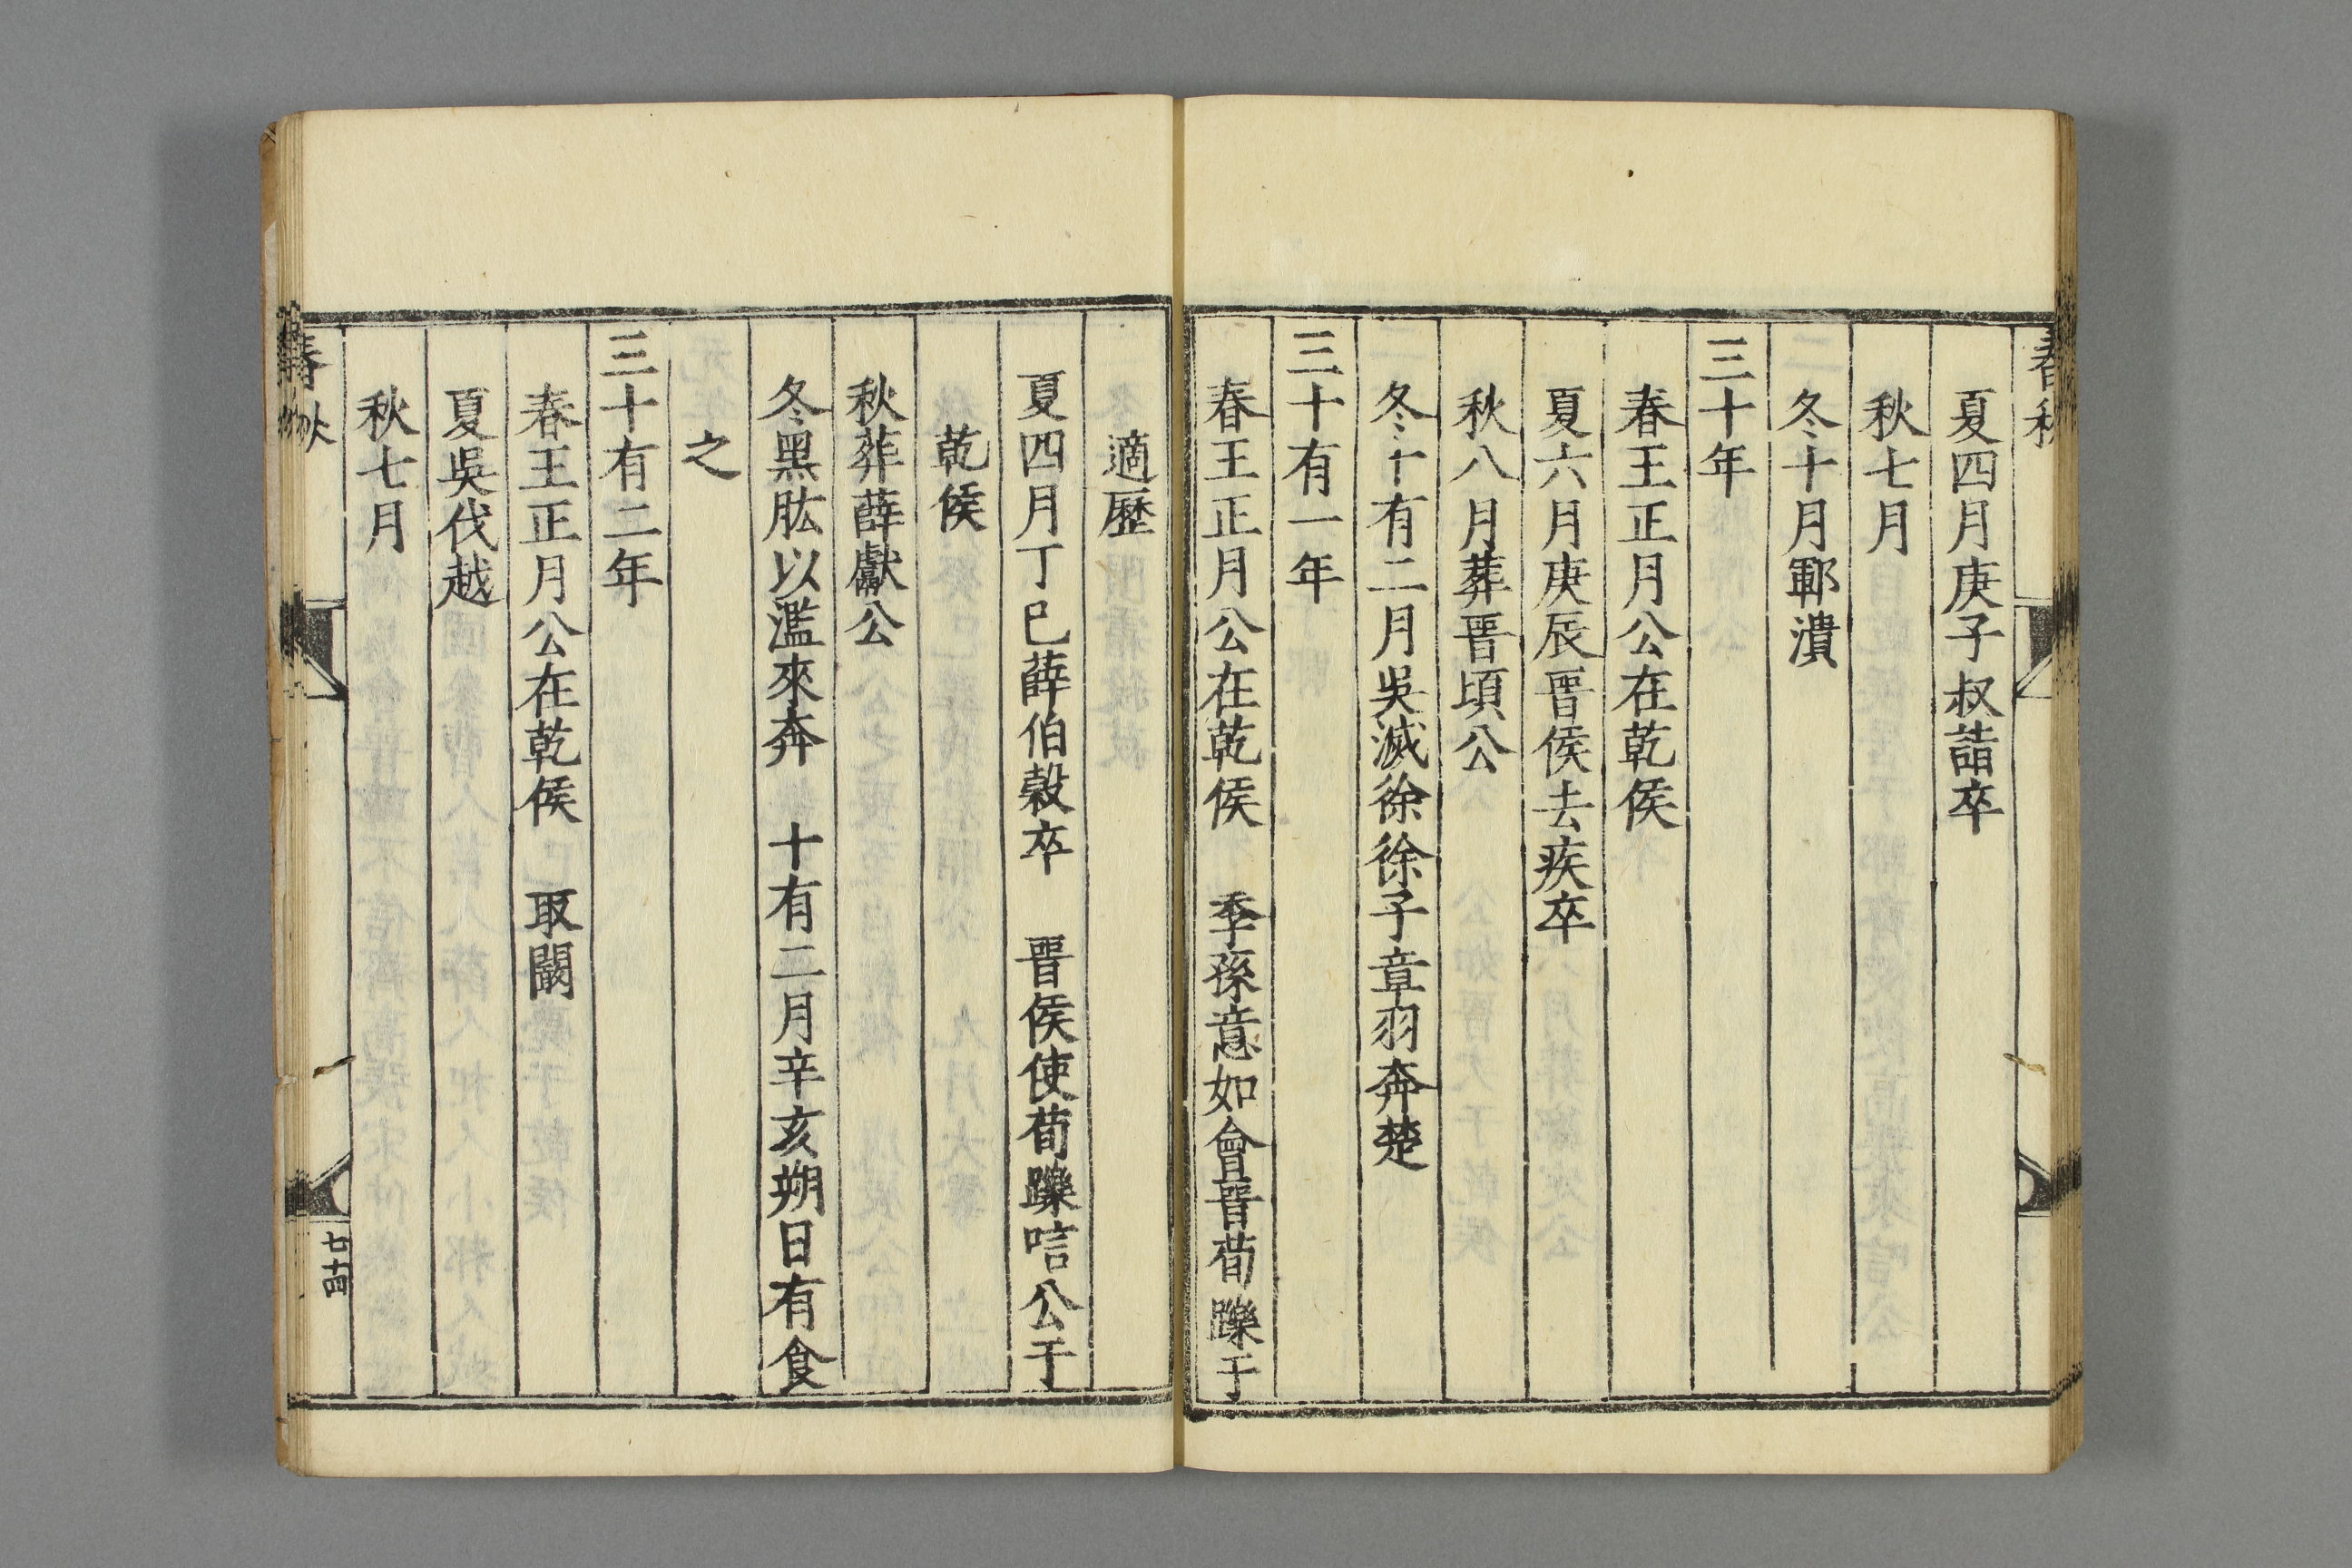 春秋
夏四月庚子叔詣卒
秋七月
冬十月鄆潰
三十年
春王正月公在乾侯
夏六月庚辰晉侯去疾卒
秋八月葬晉頃公
冬十有二月吳滅徐徐子章羽奔楚
三十有一年
春王正月公在乾侯　季孫意如會晉荀躒于
適歷
夏四月丁巳薛伯穀卒　晉侯使荀躒唁公于
乾侯
秋葬薛獻公
冬黑肱以濫來奔　十有二月辛亥朔日有食
之
三十有二年
春王正月公在乾侯　取闞
夏吳伐越
秋七月
春秋
七十四